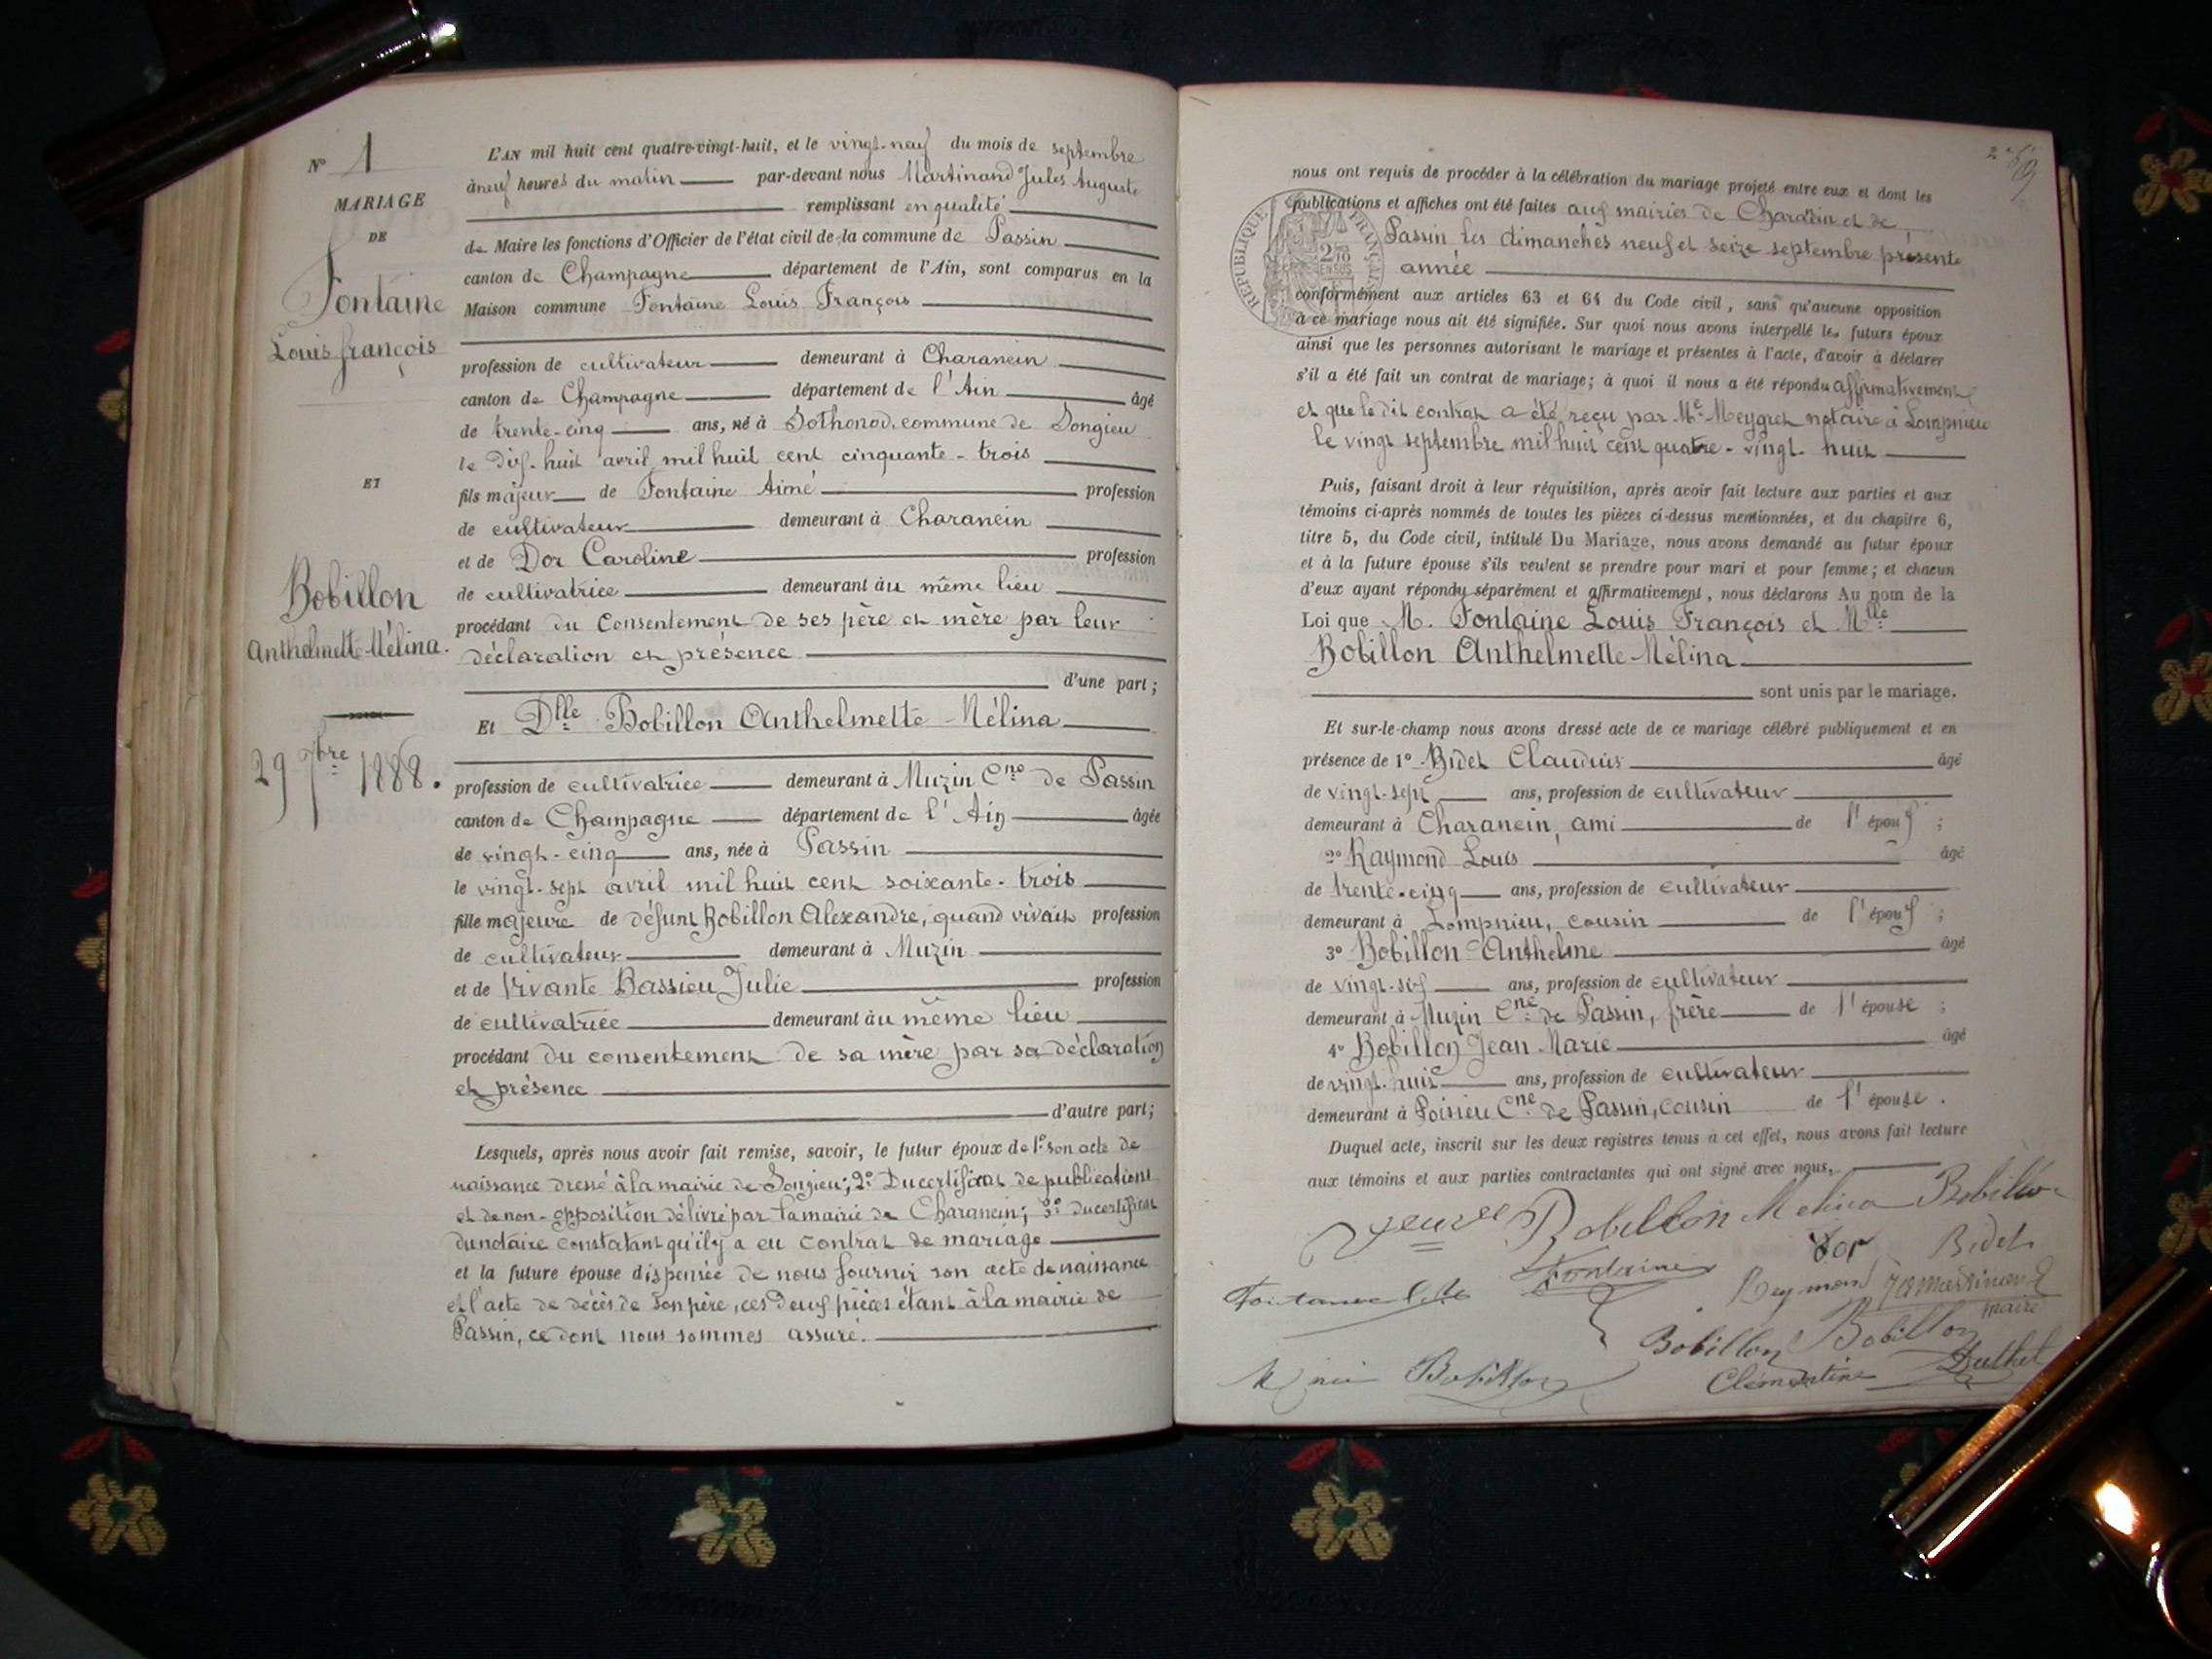 N° 1
MARIAGE
DE
Fontaine
Louis françois
ET
Bobillon
Anthelmette-Mélina.
29 7bre 1888.
L'AN mil huit cent quatre-vingt-huit, et le vingt-neuf du mois de septembre
à neuf heures du matin par-devant nous Martinand Jules Auguste
remplissant en qualité
de Maire les fonctions d'Officier de l'état civil de la commune de Passin
canton de Champagne département de l'Ain, sont comparus en la
Maison commune Fontaine Louis François
profession de cultivateur demeurant à Charancin
canton de Champagne département de l'Ain âgé
de trente-cinq ans, né à Sothonod, commune de Songieu
le dix-huit avril mil huit cent cinquante-trois
fils majeur de Fontaine Aimé profession
de cultivateur demeurant à Charancin
et de Dor Caroline profession
de cultivatrice demeurant au même lieu
procédant du Consentement de ses père et mère par leur
déclaration et présence
d'une part;
Et Dlle Bobillon Anthelmette Mélina
profession de cultivatrice demeurant à Muzin Cne de Passin
canton de Champagne département de l'Ain âgée
de vingt-cinq ans, née à Passin
le vingt-sept avril mil huit cent soixante-trois
fille majeure de défunt Bobillon Alexandre, quand vivait profession
de cultivateur demeurant à Muzin
et de vivante Bassieu Julie profession
de cultivatrice demeurant au même lieu
procédant du consentement de sa mère par sa déclaration
et présence
d'autre part;
Lesquels, après nous avoir fait remise, savoir, le futur époux de 1° son acte de
naissance dressé à la mairie de Songieu; 2° Du certificat de publications
et de non-opposition délivré par la mairie de Charancin; 3° du certificat
du notaire constatant qu'il y a eu contrat de mariage
et la future épouse dispensée de nous fournir son acte de naissance
et l'acte de décès de son père, ces deux pièces étant à la mairie de
Passin, ce dont nous sommes assuré.
nous ont requis de procéder à la célébration du mariage projeté entre eux et dont les
publications et affiches ont été faites aux mairies de Charancin et de
Passin les dimanches neuf et seize septembre présente
année
RÉPUBLIQUE FRANÇAISE
conformément aux articles 63 et 64 du Code civil, sans qu'aucune opposition
à ce mariage nous ait été signifiée. Sur quoi nous avons interpellé les futurs époux
ainsi que les personnes autorisant le mariage et présentes à l'acte, d'avoir à déclarer
s'il a été fait un contrat de mariage; à quoi il nous a été répondu affirmativement
et que le dit contrat a été reçu par Me Meygret notaire à Lompnieu
le vingt septembre mil huit cent quatre-vingt-huit
Puis, faisant droit à leur réquisition, après avoir fait lecture aux parties et aux
témoins ci-après nommés de toutes les pièces ci-dessus mentionnées, et du chapitre 6,
titre 5, du Code civil, intitulé Du Mariage, nous avons demandé au futur époux
et à la future épouse s'ils veulent se prendre pour mari et pour femme; et chacun
d'eux ayant répondu séparément et affirmativement, nous déclarons Au nom de la
Loi que M. Fontaine Louis François et Mlle
Bobillon Anthelmette-Mélina
sont unis par le mariage.
Et sur-le-champ nous avons dressé acte de ce mariage célébré publiquement et en
présence de 1° Bidet Claudius âgé
de vingt-sept ans, profession de cultivateur
demeurant à Charancin, ami de l'époux;
2° Raymond Louis âgé
de trente-cinq ans, profession de cultivateur
demeurant à Lompnieu, cousin de l'époux;
3° Bobillon Anthelme âgé
de vingt-six ans, profession de cultivateur
demeurant à Muzin Cne de Passin, frère de l'épouse;
4° Bobillon Jean Marie âgé
de vingt-huit ans, profession de cultivateur
demeurant à Poisieu Cne de Passin, cousin de l'épouse.
Duquel acte, inscrit sur les deux registres tenus à cet effet, nous avons fait lecture
aux témoins et aux parties contractantes qui ont signé avec nous,
veuve Bobillon Melina Bobillon
Fontaine Dor Bidet
Fontaine Reymond JAMartinand
maire
Bobillon Bobillon
Bobillon Clémentine Duthel